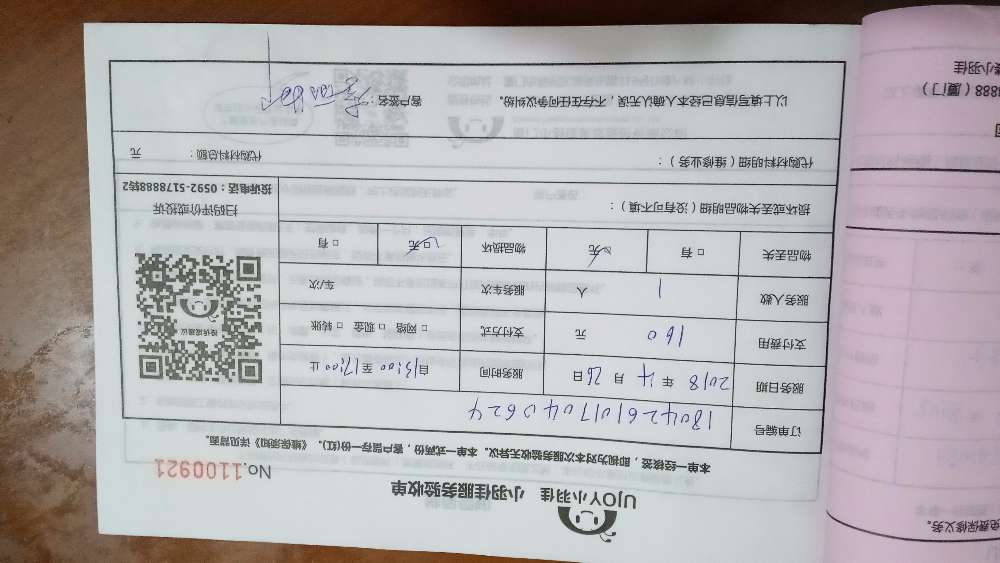 UJOY小羽佳 小羽佳服务验收单
No.1100921
本单一经核签，即视为对本次服务验收无异议。本单一式两份，客户留存一份(红)。《维保须知》详见背面。
订单编号 180426101704D624
服务日期 2018 年 4 月 26 日 服务时间 自 13:00 至 17:00 止
支付费用 160 元 支付方式 □ 网络 □ 现金 □ 转账
服务人数 1 人 服务车次 车/次
物品丢失 □ 有 □ 无 物品损坏 □ 无 □ 有
投诉或建议
扫码评价或投诉
投诉电话：0592-5178888转2
损坏或丢失物品明细（没有可不填）：
代购材料明细（维修业务）： 代购材料总额： 元
以上填写信息已经本人确认无误，不存在任何争议纠纷。 客户签名：
免费保修义务。
8888（厦门）
小羽佳